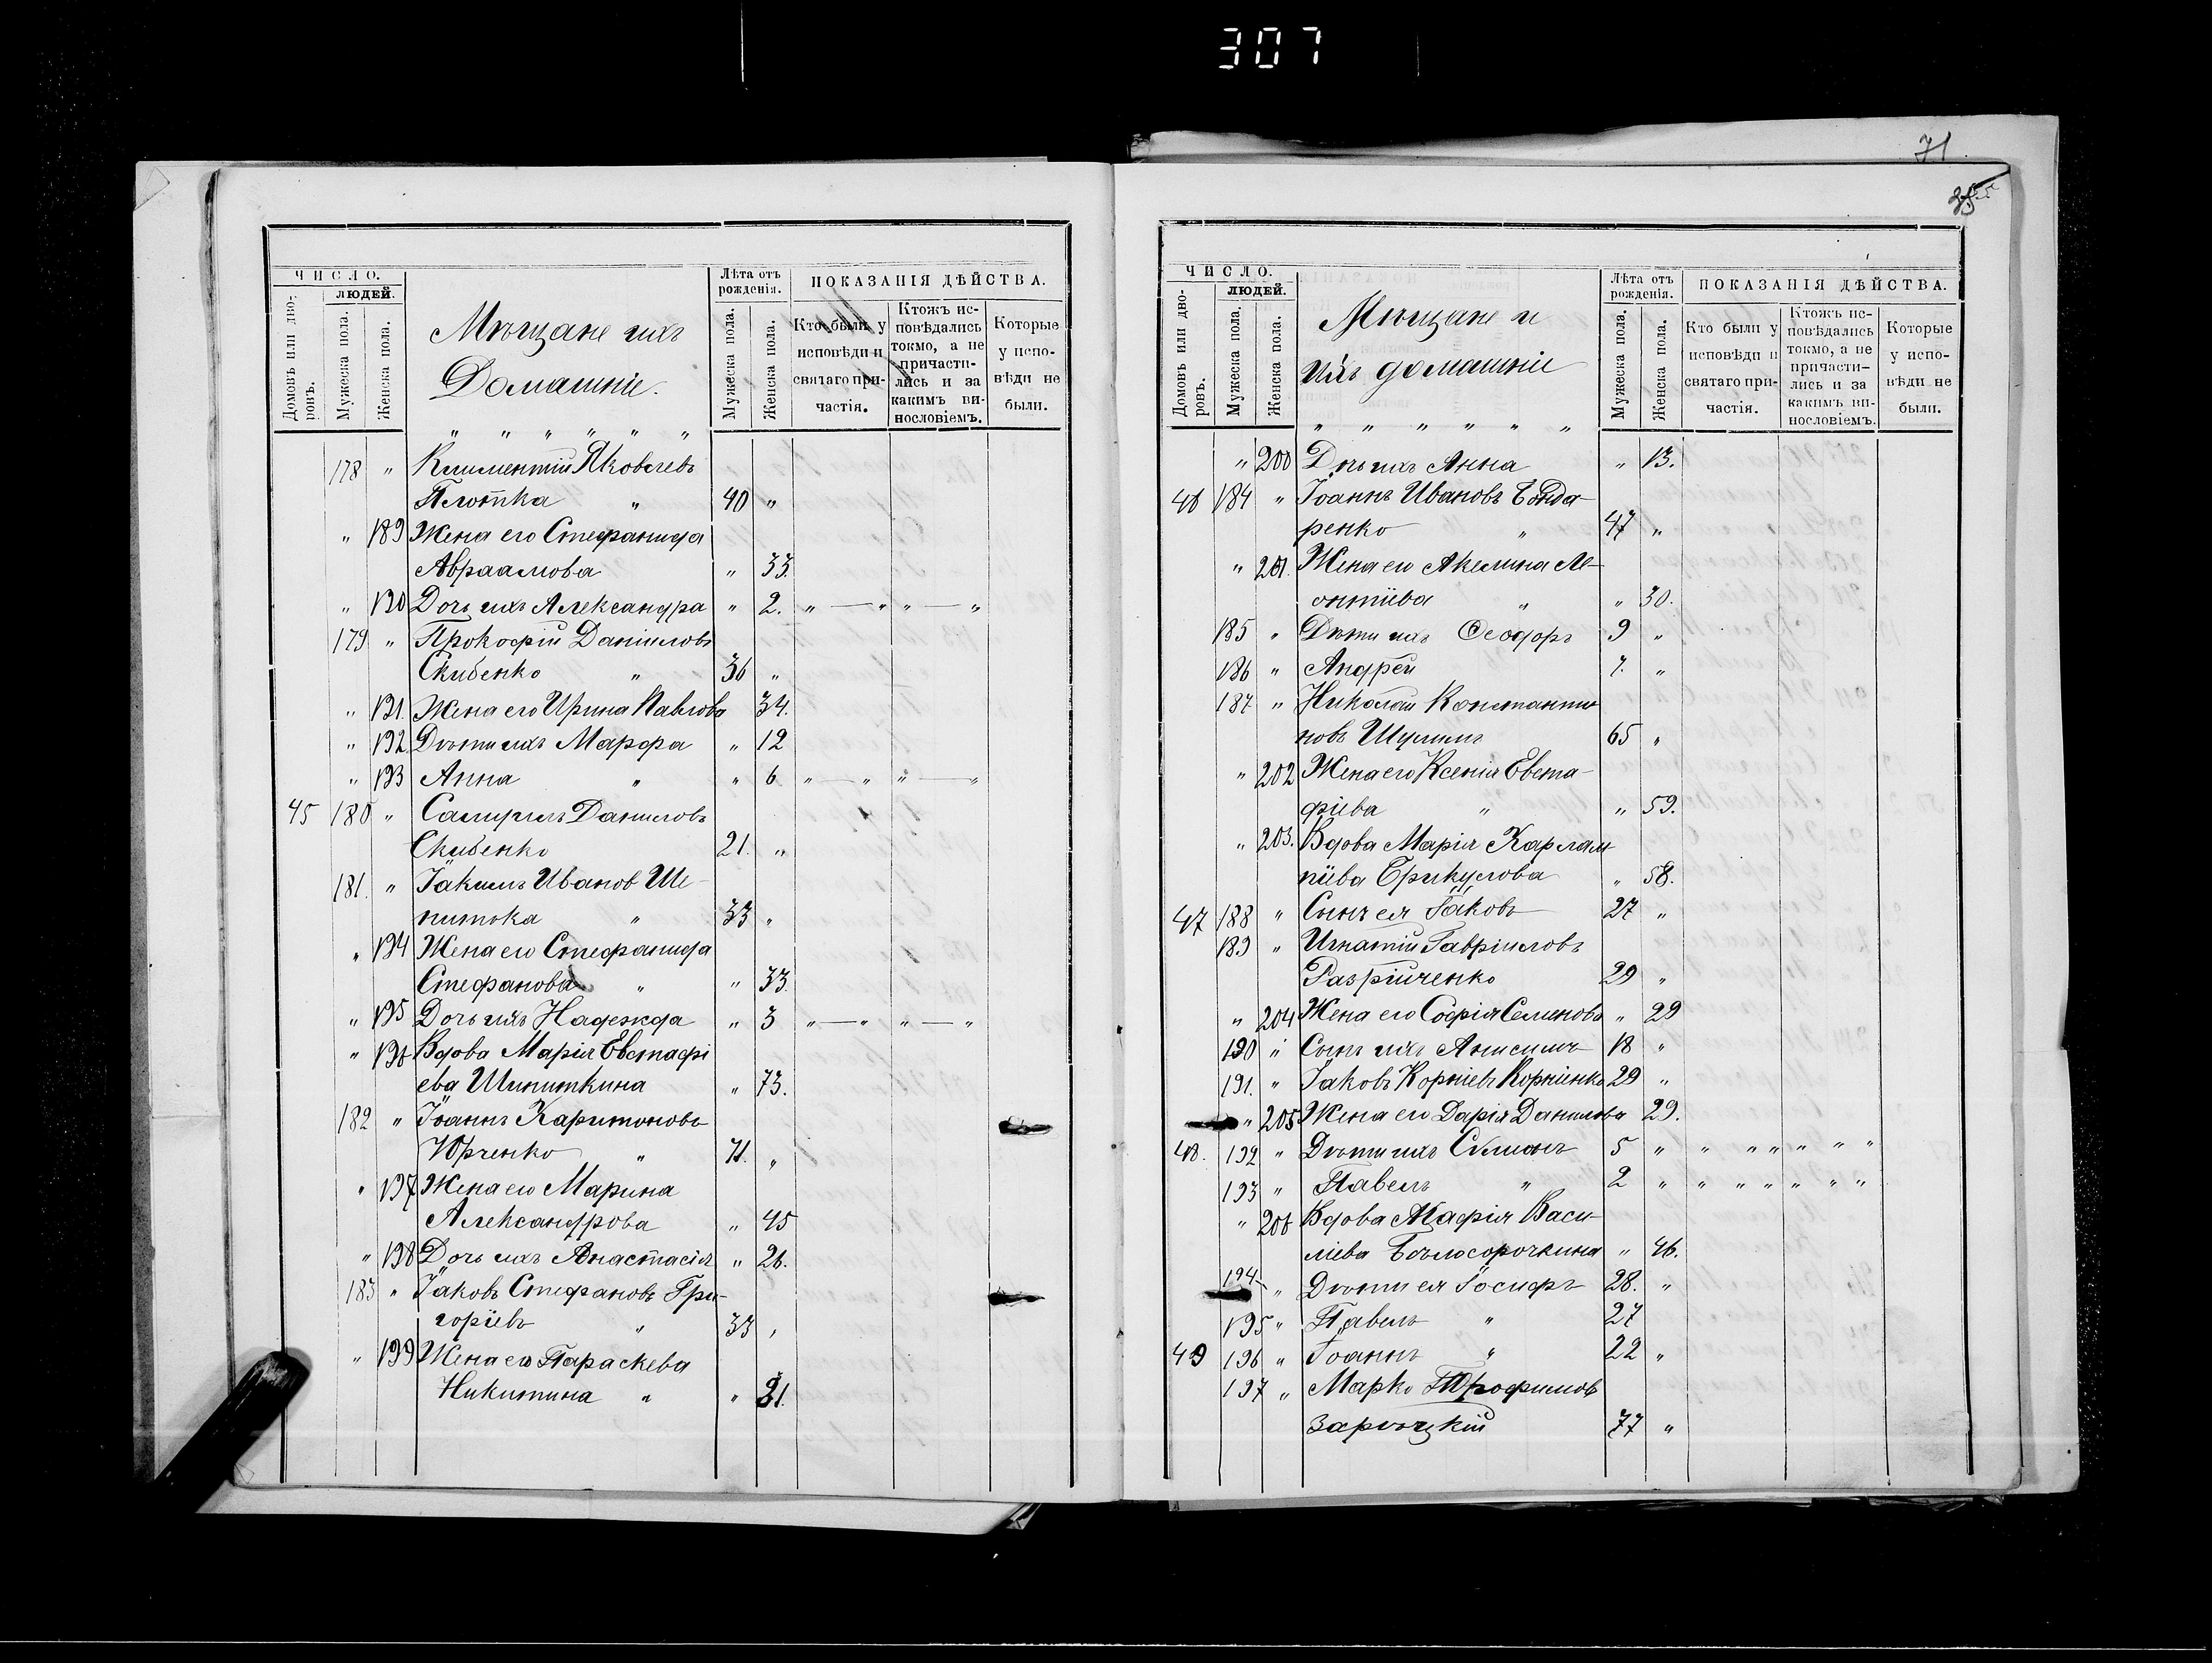 307
71
ЧИСЛО.
ЛЮДЕЙ.
Домовъ или дворовъ.
Мужеска пола.
Женска пола.
Мѣщане ихъ
Домашніе.
Лѣта отъ рожденія.
Мужеска пола.
Женска пола.
ПОКАЗАНІЯ ДѢЙСТВА.
Кто были у исповѣди и святаго причастія.
Ктожъ исповѣдались токмо, а не причастились и за какимъ винословіемъ.
Которые у исповѣди не были.
" " " " " "
178 " Климентій Яковлевъ
Плотка " 40 "
" 189 Жена его Стефанида
Авраамова " 33.
" 190 Дочь ихъ Александра " 2. " — " " — "
179 " Прокофій Даніиловъ
Скибенко " 36 "
" 191. Жена его Ирина Павлова 34.
" 192 Дѣти ихъ Марфа " 12
" 193 Анна " " 6 " — " " — "
45 180 " Самуилъ Даниловъ
Скибенко 21. "
181. " Іакимъ Иванов Ше-
питька " 33 "
" 194 Жена его Стефанида
Стефанова " " 33.
" 195 Дочь ихъ Надежда " 3 " — " " — "
" 196 Вдова Марія Евстафі
ева Шипиткина " 73.
182 " Іоаннъ Харитоновъ
Юрченко " 71. "
" 197 Жена его Марина
Александрова " 45
" 198 Дочь ихъ Анастасія " 26.
183 " Іаковъ Стефановъ Гри-
горіевъ " 33 "
" 199 Жена его Параскева
Никитина " " 31.
ЧИСЛО.
ЛЮДЕЙ.
Домовъ или дворовъ.
Мужеска пола.
Женска пола.
Мѣщане и
ихъ домашніе
Лѣта отъ рожденія.
Мужеска пола.
Женска пола.
ПОКАЗАНІЯ ДѢЙСТВА.
Кто были у исповѣди и святаго причастія.
Ктожъ исповѣдались токмо, а не причастились и за какимъ винословіемъ.
Которые у исповѣди не были.
" " " " " "
" 200 Дчь ихъ Анна " 13.
46 184 " Іоаннъ Ивановъ Бонда-
ренко " 47 "
" 201. Жена его Акелина Ле-
онтіева " " 30.
185 " Дѣти ихъ Ѳеодоръ 9 "
186 " Андрей 7. "
187 " Николай Константи-
новъ Шулимъ 65 "
" 202 Жена его Ксенія Евста-
фіева " " 59.
" 203. Вдова Марія Харлам-
піева Брикулова " 58.
47 188 " Сынъ ея Іаковъ 27 "
189 " Игнатій Гавріиловъ
Разрійченко 29 "
" 204 Жена его Софія Семенова " 29
190 " Сынъ ихъ Анисимъ 18 "
191. " Іаковъ Корніевъ Корніенко 29 "
" 205 Жена его Дарія Данилова 29.
48. 192 " Дѣти ихъ Симонъ 5 " " " " " " "
193 " Павелъ " 2 " " " " " " "
" 206 Вдова Марія Васи-
ліева Бѣлосорочкина " 46.
194 " Дѣти ея Іосифъ 28. "
195 " Павелъ " 27
49 196 " Іоаннъ " 22 "
197 " Марко Трофимов
Зарѣцкій 77 "